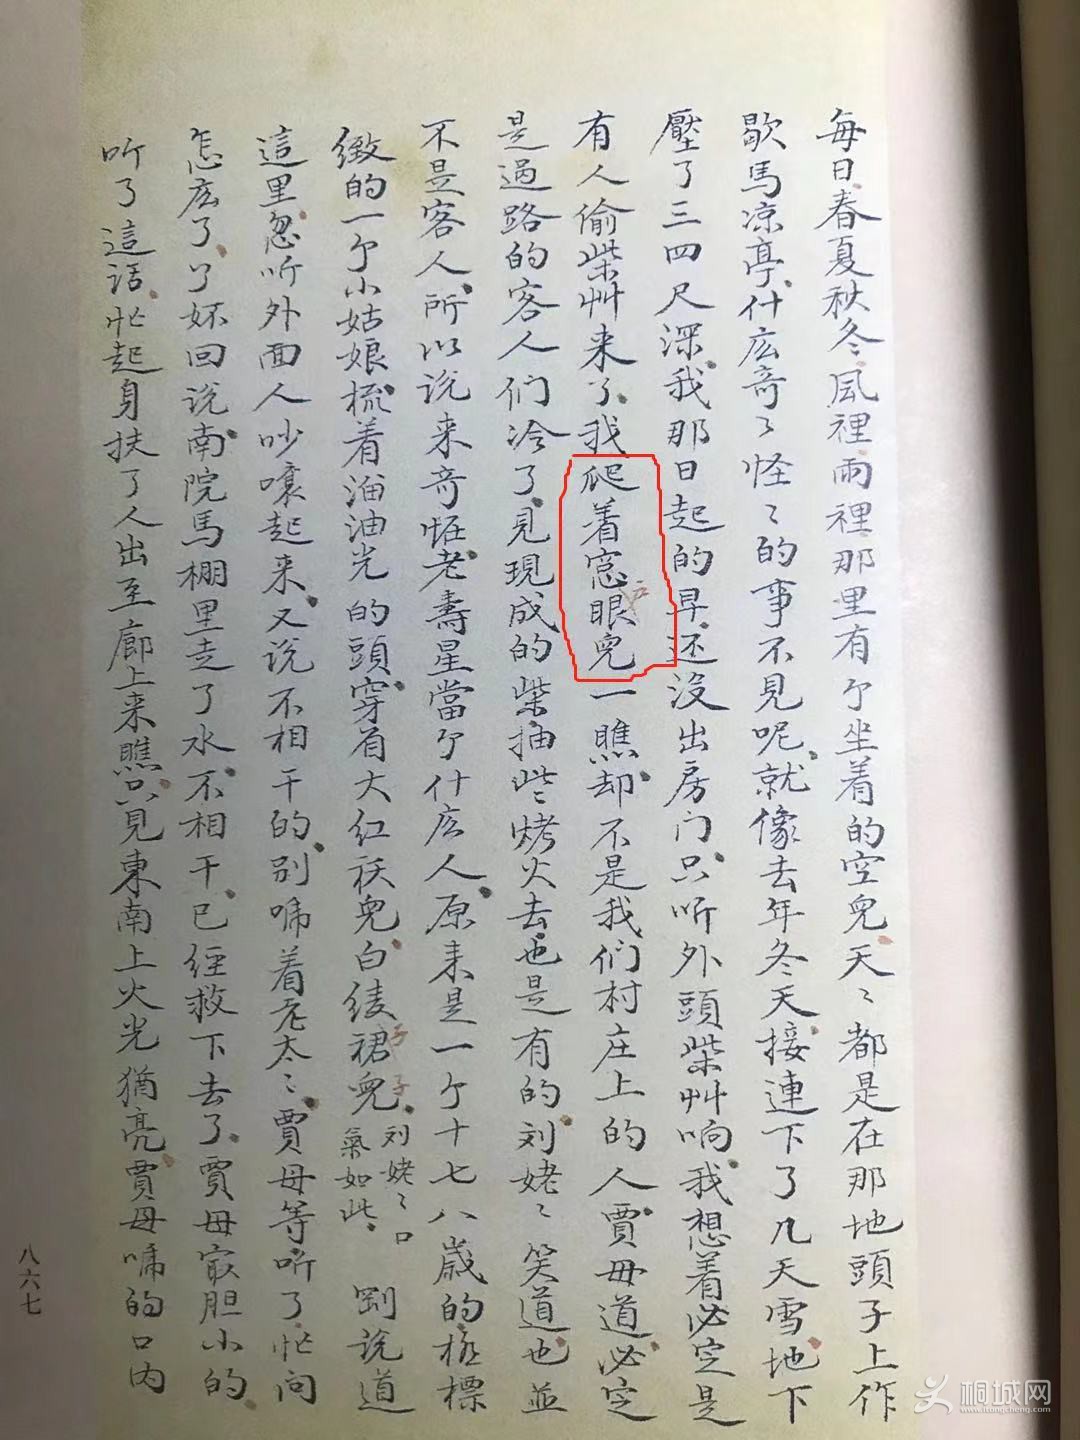 每日春夏秋冬風裡雨裡那里有个坐着的空兒天〻都是在那地頭子上作
歇馬凉亭什庅竒〻怪〻的事不見呢就像去年冬天接連下了几天雪地下
壓了三四尺深我那日起的早还沒出房门只听外頭柴艸响我想着必定是
有人偷柴艸来了我爬着窓眼兒一瞧却不是我们村庄上的人賈母道必定
户
是過路的客人们冷了見現成的柴抽些烤火去也是有的刘姥〻笑道也並
不是客人所以说来竒怪老壽星當个什庅人原来是一个十七八歲的极標
緻的一个小姑娘梳着油油光的頭穿着大红袄兒白綾裙兒
子子
刘姥〻口
氣如此
剛说道
這里忽听外面人吵嚷起来又说不相干的别唬着老太〻賈母等听了忙问
怎庅了丫嬛回说南院馬棚里走了水不相干已經救下去了賈母最胆小的
听了這话忙起身扶了人出至廊上来瞧只見東南上火光猶亮賈母唬的口内
八六七
桐城网
www.itongcheng.com